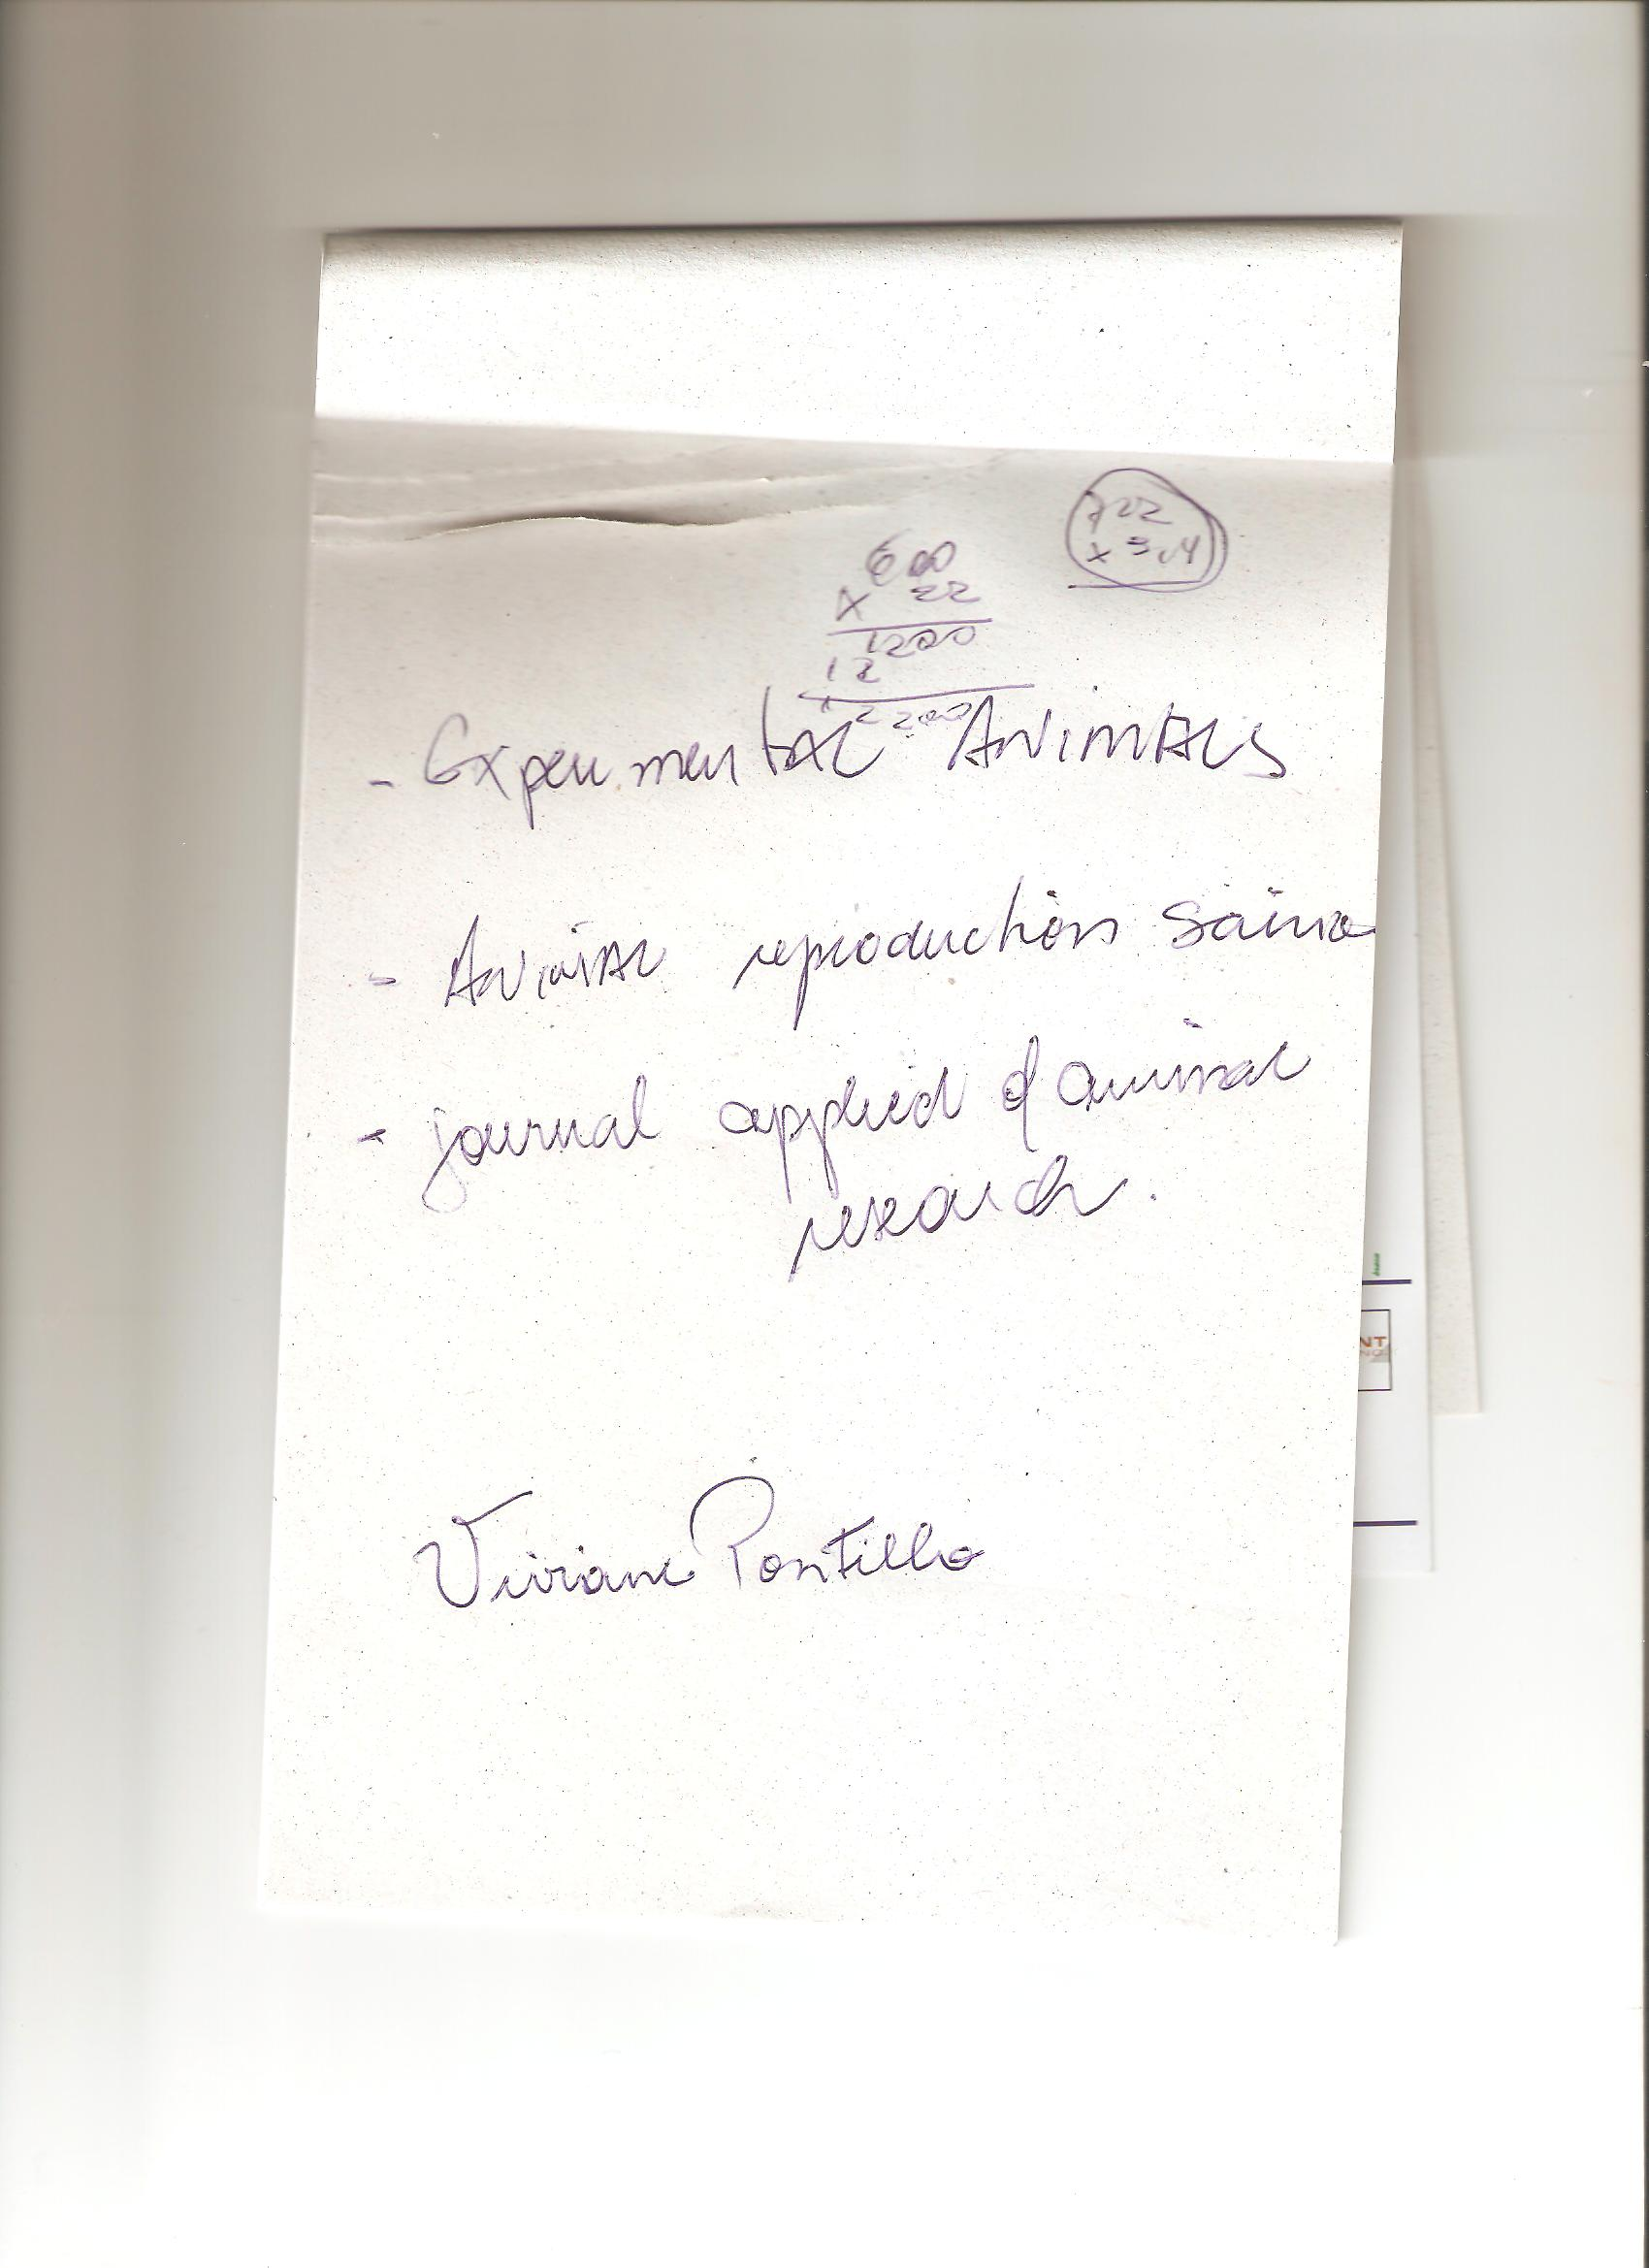 600
x 22
1200
12
- Experimental ANIMALS
- ANIMAL reproduction Science
- journal applied of animal
research.
Viviane Pontillo
NT